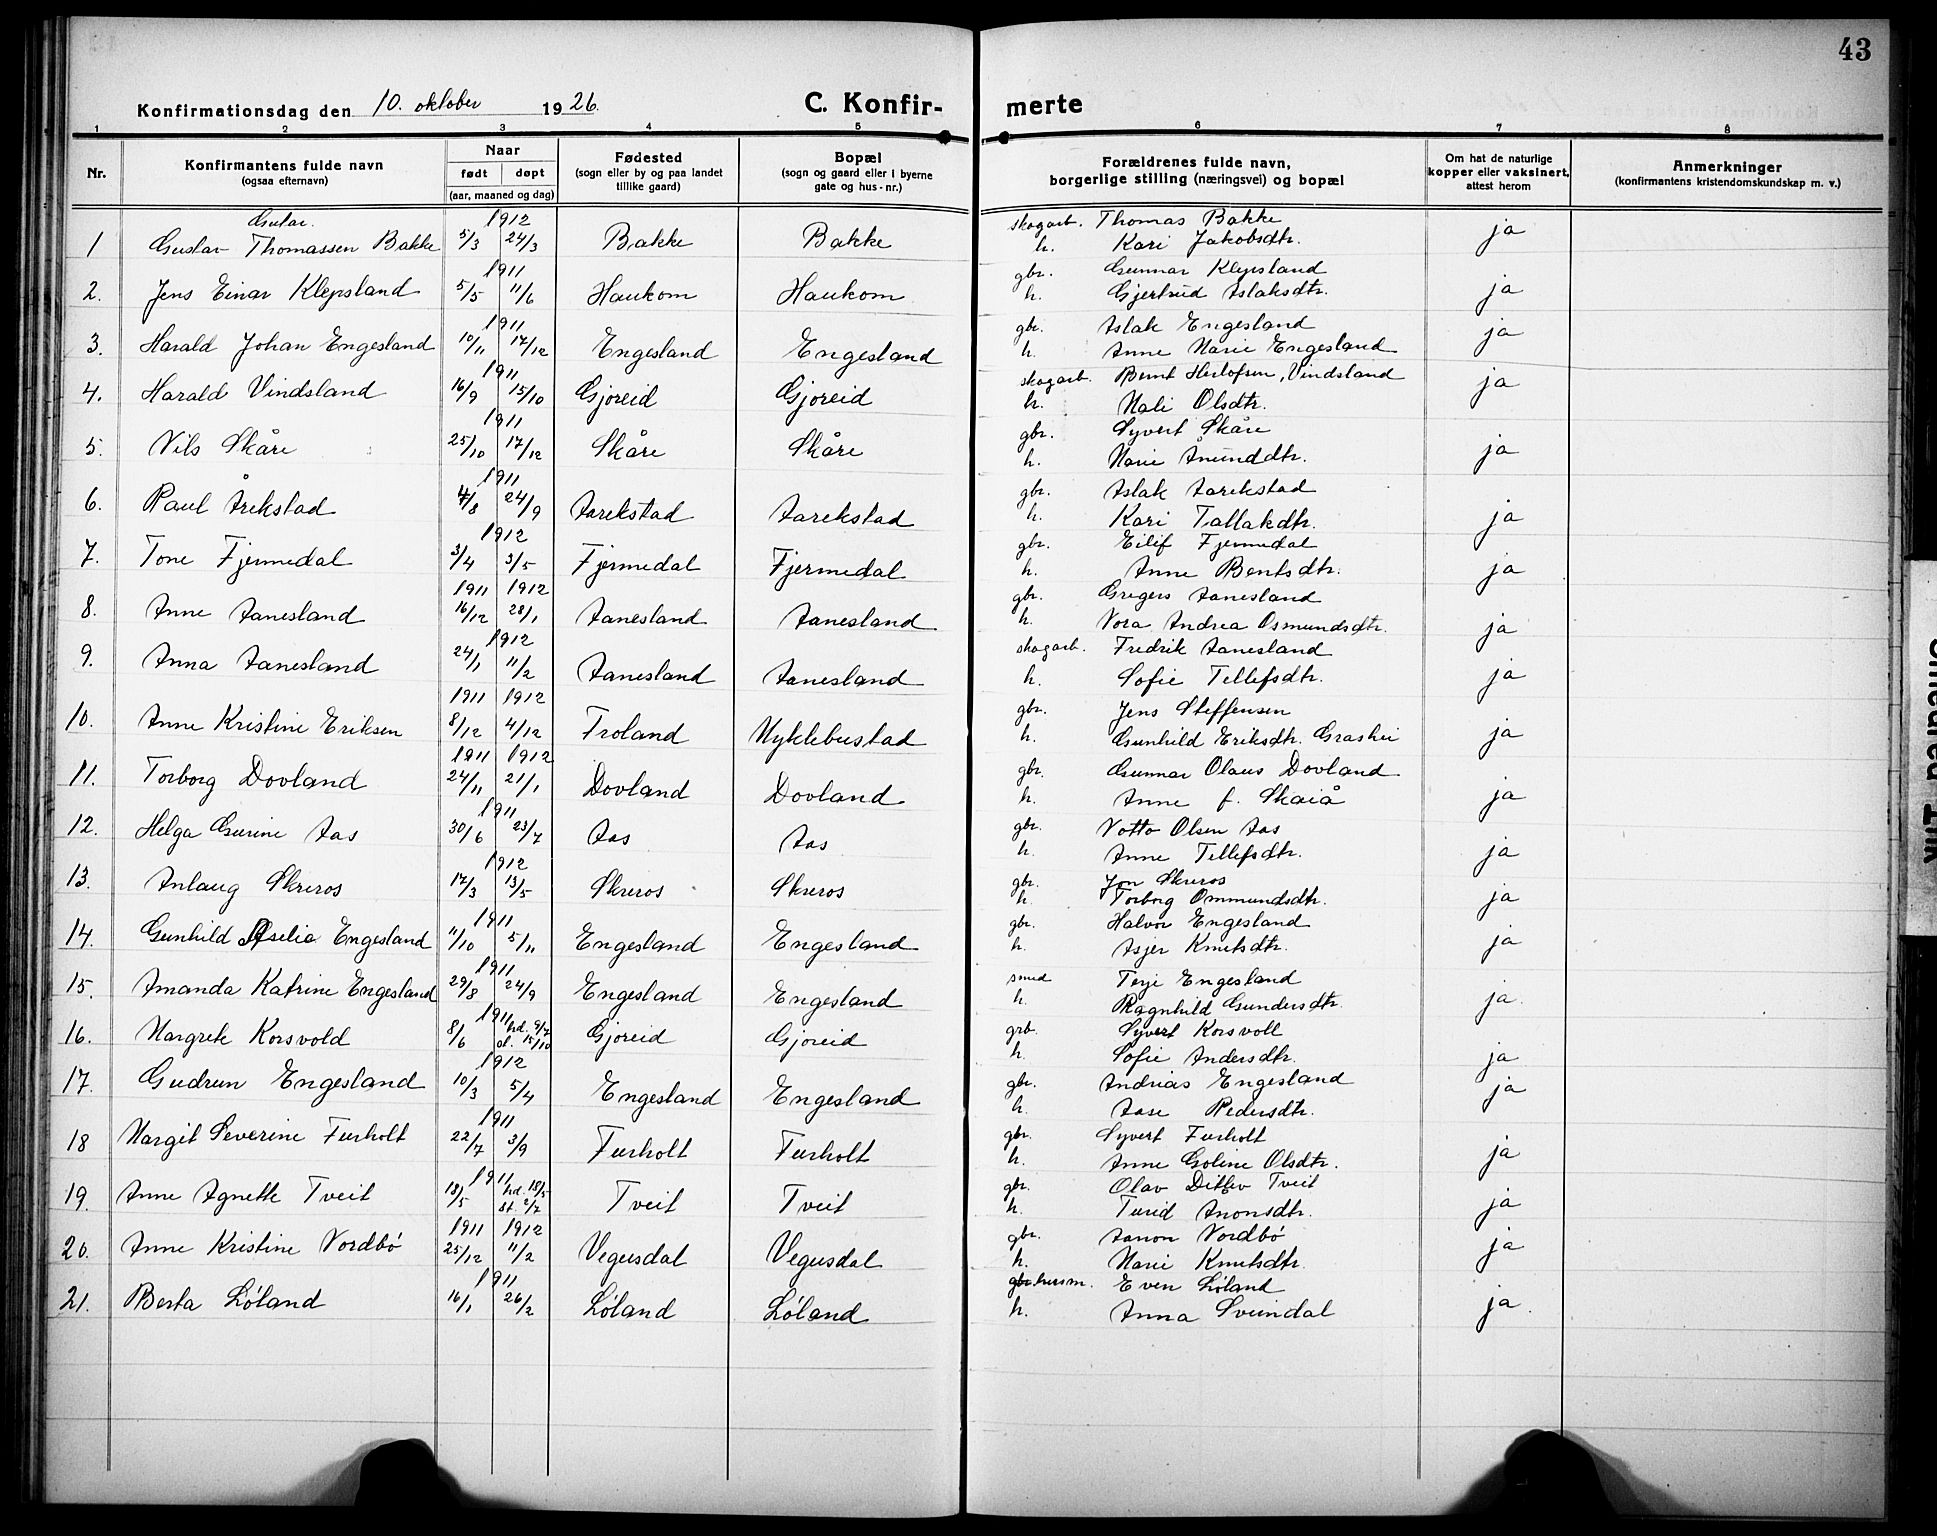 43
Konfirmationsdag den 10. oktober 1926. C. Konfirmerte
1 2 3 4 5 6 7 8
Nr. Konfirmantens fulde navn (ogsaa efternavn) Naar født døpt (aar, maaned og dag) Fødested (sogn eller by og paa landet tillike gaard) Bopæl (sogn og gaard eller i byerne gate og hus-nr.) Forældrenes fulde navn, borgerlige stilling (næringsvei) og bopæl Om hat de naturlige kopper eller vaksinert, attest herom Anmerkninger (konfirmantens kristendomskundskap m. v.)
Gustav 1912 skogarb. Thomas Bakke
1 Gustav Thomassen Bakke 5/3 24/3 Bakke Bakke h. Kari Jakobsdtr. ja
1911 gbr. Gunnar Klepsland
2. Jens Einar Klepsland 5/5 11/6 Haukom Haukom h. Gjertrud Aslaksdtr. ja
1911 gbr. Aslak Engesland
3. Harald Johan Engesland 10/11 17/12 Engesland Engesland h. Anne Marie Engesland ja
1911 skogarb. Bernt Herlofsen, Vindsland
4. Harald Vindsland 16/9 15/10 Gjøreid Gjøreid h. Mali Olsdtr. ja
1911 gbr. Syvert Skåre
5. Nils Skåre 25/10 17/12 Skåre Skåre h. Marie Ånunddtr. ja
1911 gbr. Aslak Aarekstad
6. Paul Årekstad 4/8 24/9 Aarekstad Aarekstad h. Kari Tallakdtr. ja
1912 gbr. Eilif Fjermedal
7. Tone Fjermedal 3/4 3/5 Fjermedal Fjermedal h. Anne Bentsdtr. ja
1911 1912 gbr. Gregers Aanesland
8. Anne Aanesland 16/12 28/1 Aanesland Aanesland h. Nora Andrea Osmundsdtr. ja
1912 skogarb. Fredrik Aanesland
9. Anna Aanesland 24/1 11/2 Aanesland Aanesland h. Sofie Tellefsdtr. ja
1911 1912 gbr. Jens Steffensen
10. Anne Kristine Eriksen 8/12 4/12 Froland Myklebustad h. Gunhild Eriksdtr. Grashei ja
1911 1912 gbr. Gunnar Olaus Dovland
11. Torborg Dovland 24/11 21/1 Dovland Dovland h. Anne f. Skaiå ja
1911 gbr. Notto Olsen Aas
12. Helga Gurine Aas 30/6 23/7 Aas Aas h. Anne Tellefsdtr. ja
1912 gbr. Jon Skreros
13. Anlaug Skreros 17/3 13/5 Skreros Skreros h. Torborg Ommundsdtr. ja
1911 gbr. Halvor Engesland
14. Gunhild Aselie Engesland 11/10 5/11 Engesland Engesland h. Asjer Knutsdtr. ja
1911 smed Terje Engesland
15. Amanda Katrine Engesland 29/8 24/9 Engesland Engesland h. Ragnhild Gundersdtr. ja.
1911 hd. 9/7 grb. Syvert Korsvoll
16. Margrete Korsvold 8/6 st. 15/10 Gjøreid Gjøreid h. Sofie Andersdtr. ja
1912
17. Gudrun Engesland 10/3 5/4 Engesland Engesland gbr. Andrias Engesland ja
h. Aase Pedersdtr.
1911 gbr. Syvert Furholt
18 Margit Severine Furholt 22/7 3/9 Furholt Furholt h. Anne Goline Olsdtr. ja
1911 hd. 18/5 gbr. Olav Ditlev Tveit
19. Anne Agnethe Tveit 13/5 st. 2/7 Tveit Tveit h. Turid Anonsdtr. ja
1911 1912 gbr. Aanon Nordbø
20. Anne Kristine Nordbø 25/12 11/2 Vegusdal Vegusdal h. Marie Knutsdtr. ja
1911 gbr husm. Even Løland
21. Berta Løland 16/1 26/2 Løland Løland h. Anna Svendal ja.